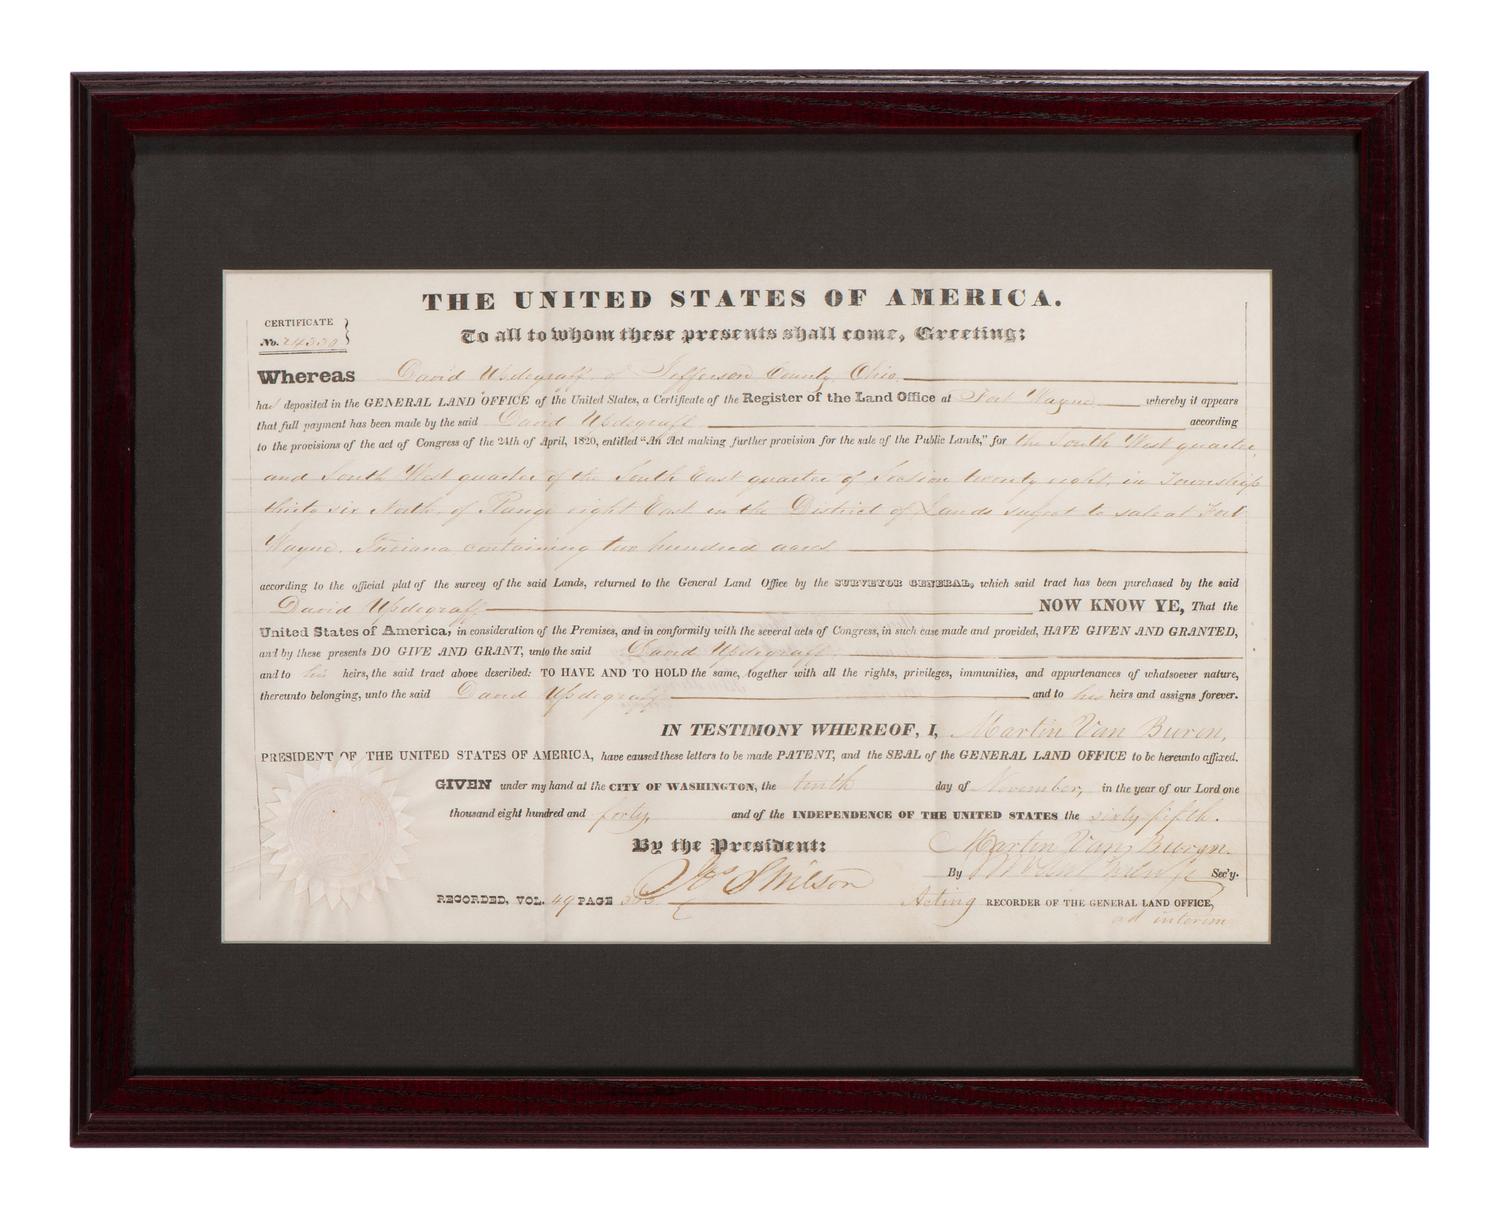 THE UNITED STATES OF AMERICA.
CERTIFICATE
No.
To all to whom these presents shall come, Greeting:
Whereas David Updegraff, of Jefferson County, Ohio,
has deposited in the GENERAL LAND OFFICE of the United States, a Certificate of the Register of the Land Office at Fort Wayne whereby it appears
that full payment has been made by the said David Updegraff according
to the provisions of the act of Congress of the 24th of April, 1820, entitled "An Act making further provision for the sale of the Public Lands," for the South West quarter,
and South West quarter of the South East quarter of Section twenty eight, in Township
thirty six North, of Range eight East, in the District of Lands subject to sale at Fort
Wayne, Indiana containing two hundred acres
according to the official plat of the survey of the said Lands, returned to the General Land Office by the SURVEYOR GENERAL, which said tract has been purchased by the said
David Updegraff NOW KNOW YE, That the
United States of America, in consideration of the Premises, and in conformity with the several acts of Congress, in such case made and provided, HAVE GIVEN AND GRANTED,
and by these presents DO GIVE AND GRANT, unto the said David Updegraff
and to his heirs, the said tract above described: TO HAVE AND TO HOLD the same, together with all the rights, privileges, immunities, and appurtenances of whatsoever nature,
thereunto belonging, unto the said David Updegraff and to his heirs and assigns forever.
IN TESTIMONY WHEREOF, I, Martin Van Buren,
PRESIDENT OF THE UNITED STATES OF AMERICA, have caused these letters to be made PATENT, and the SEAL of the GENERAL LAND OFFICE to be hereunto affixed.
GIVEN under my hand at the CITY OF WASHINGTON, the tenth day of November, in the year of our Lord one
thousand eight hundred and forty, and of the INDEPENDENCE OF THE UNITED STATES the sixty fifth.
By the President: Martin Van Buren.
Jos S Wilson By Sec'y.
RECORDED, VOL. 49 PAGE Acting RECORDER OF THE GENERAL LAND OFFICE,
ad interim